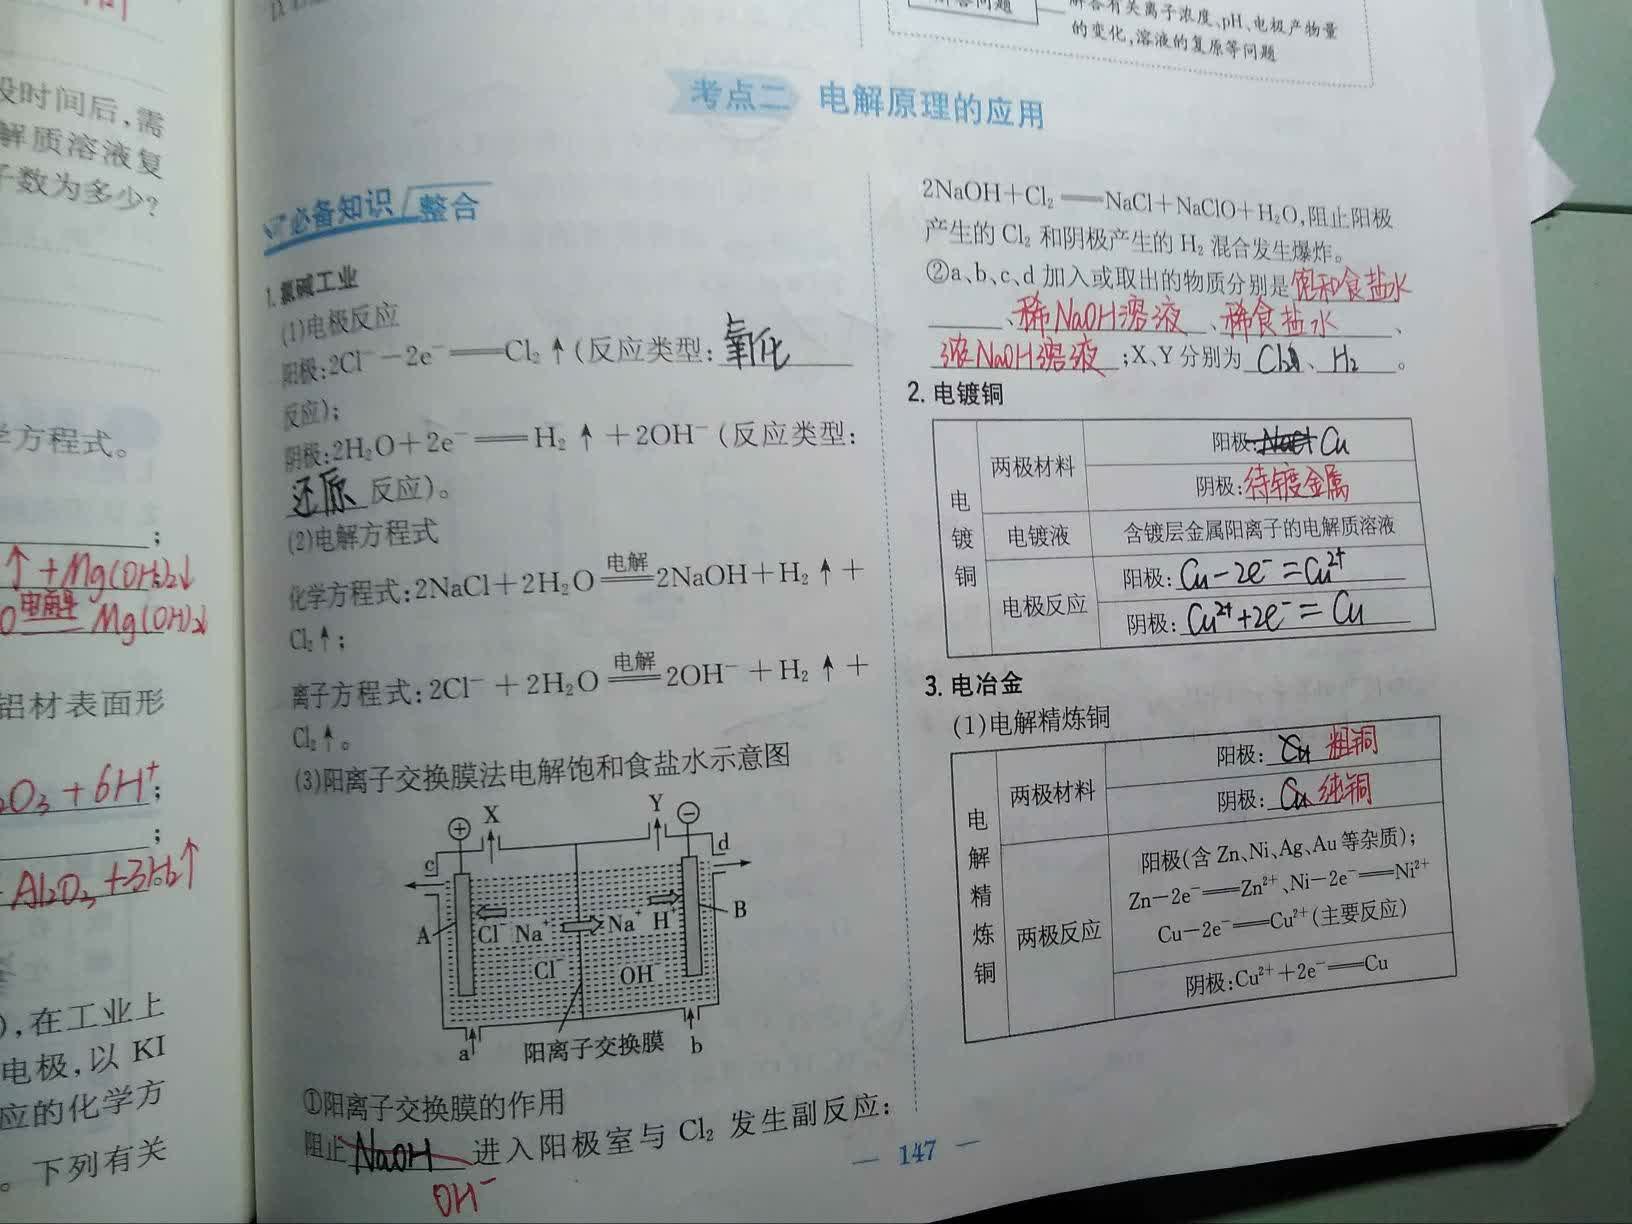 段时间后,需
解质溶液复
子数为多少?
学方程式。
;
↑+Mg(OH)₂↓
电解 Mg(OH)₂↓
铝材表面形
₂O₃+6H⁺;
;
Al₂O₃+3H₂↑
),在工业上
电极,以 KI
应的化学方
。下列有关
解答问题
解答有关离子浓度、pH、电极产物量
的变化,溶液的复原等问题
考点二 电解原理的应用
必备知识 整合
1. 氯碱工业
(1)电极反应
阳极:2Cl⁻-2e⁻══Cl₂↑(反应类型:氧化
反应);
阴极:2H₂O+2e⁻══H₂↑+2OH⁻(反应类型:
还原 反应)。
(2)电解方程式
化学方程式:2NaCl+2H₂O 电解══ 2NaOH+H₂↑+
Cl₂↑;
离子方程式:2Cl⁻+2H₂O 电解══ 2OH⁻+H₂↑+
Cl₂↑。
(3)阳离子交换膜法电解饱和食盐水示意图
X Y
+ −
c d
A Cl⁻ Na⁺ Na⁺ H⁺ B
Cl⁻ OH⁻
a 阳离子交换膜 b
①阳离子交换膜的作用
阻止 NaOH 进入阳极室与 Cl₂ 发生副反应:
OH⁻
2NaOH+Cl₂══NaCl+NaClO+H₂O,阻止阳极
产生的 Cl₂ 和阴极产生的 H₂ 混合发生爆炸。
②a、b、c、d 加入或取出的物质分别是饱和食盐水
、稀NaOH溶液、稀食盐水、
浓NaOH溶液;X、Y 分别为 Cl₂、H₂。
2. 电镀铜
电镀铜
两极材料
阳极:Cu
阴极:待镀金属
电镀液
含镀层金属阳离子的电解质溶液
电极反应
阳极:Cu-2e⁻=Cu²⁺
阴极:Cu²⁺+2e⁻=Cu
3. 电冶金
(1)电解精炼铜
电解精炼铜
两极材料
阳极:Cu 粗铜
阴极:Cu 纯铜
两极反应
阳极(含 Zn、Ni、Ag、Au 等杂质):
Zn-2e⁻══Zn²⁺、Ni-2e⁻══Ni²⁺
Cu-2e⁻══Cu²⁺(主要反应)
阴极:Cu²⁺+2e⁻══Cu
— 147 —